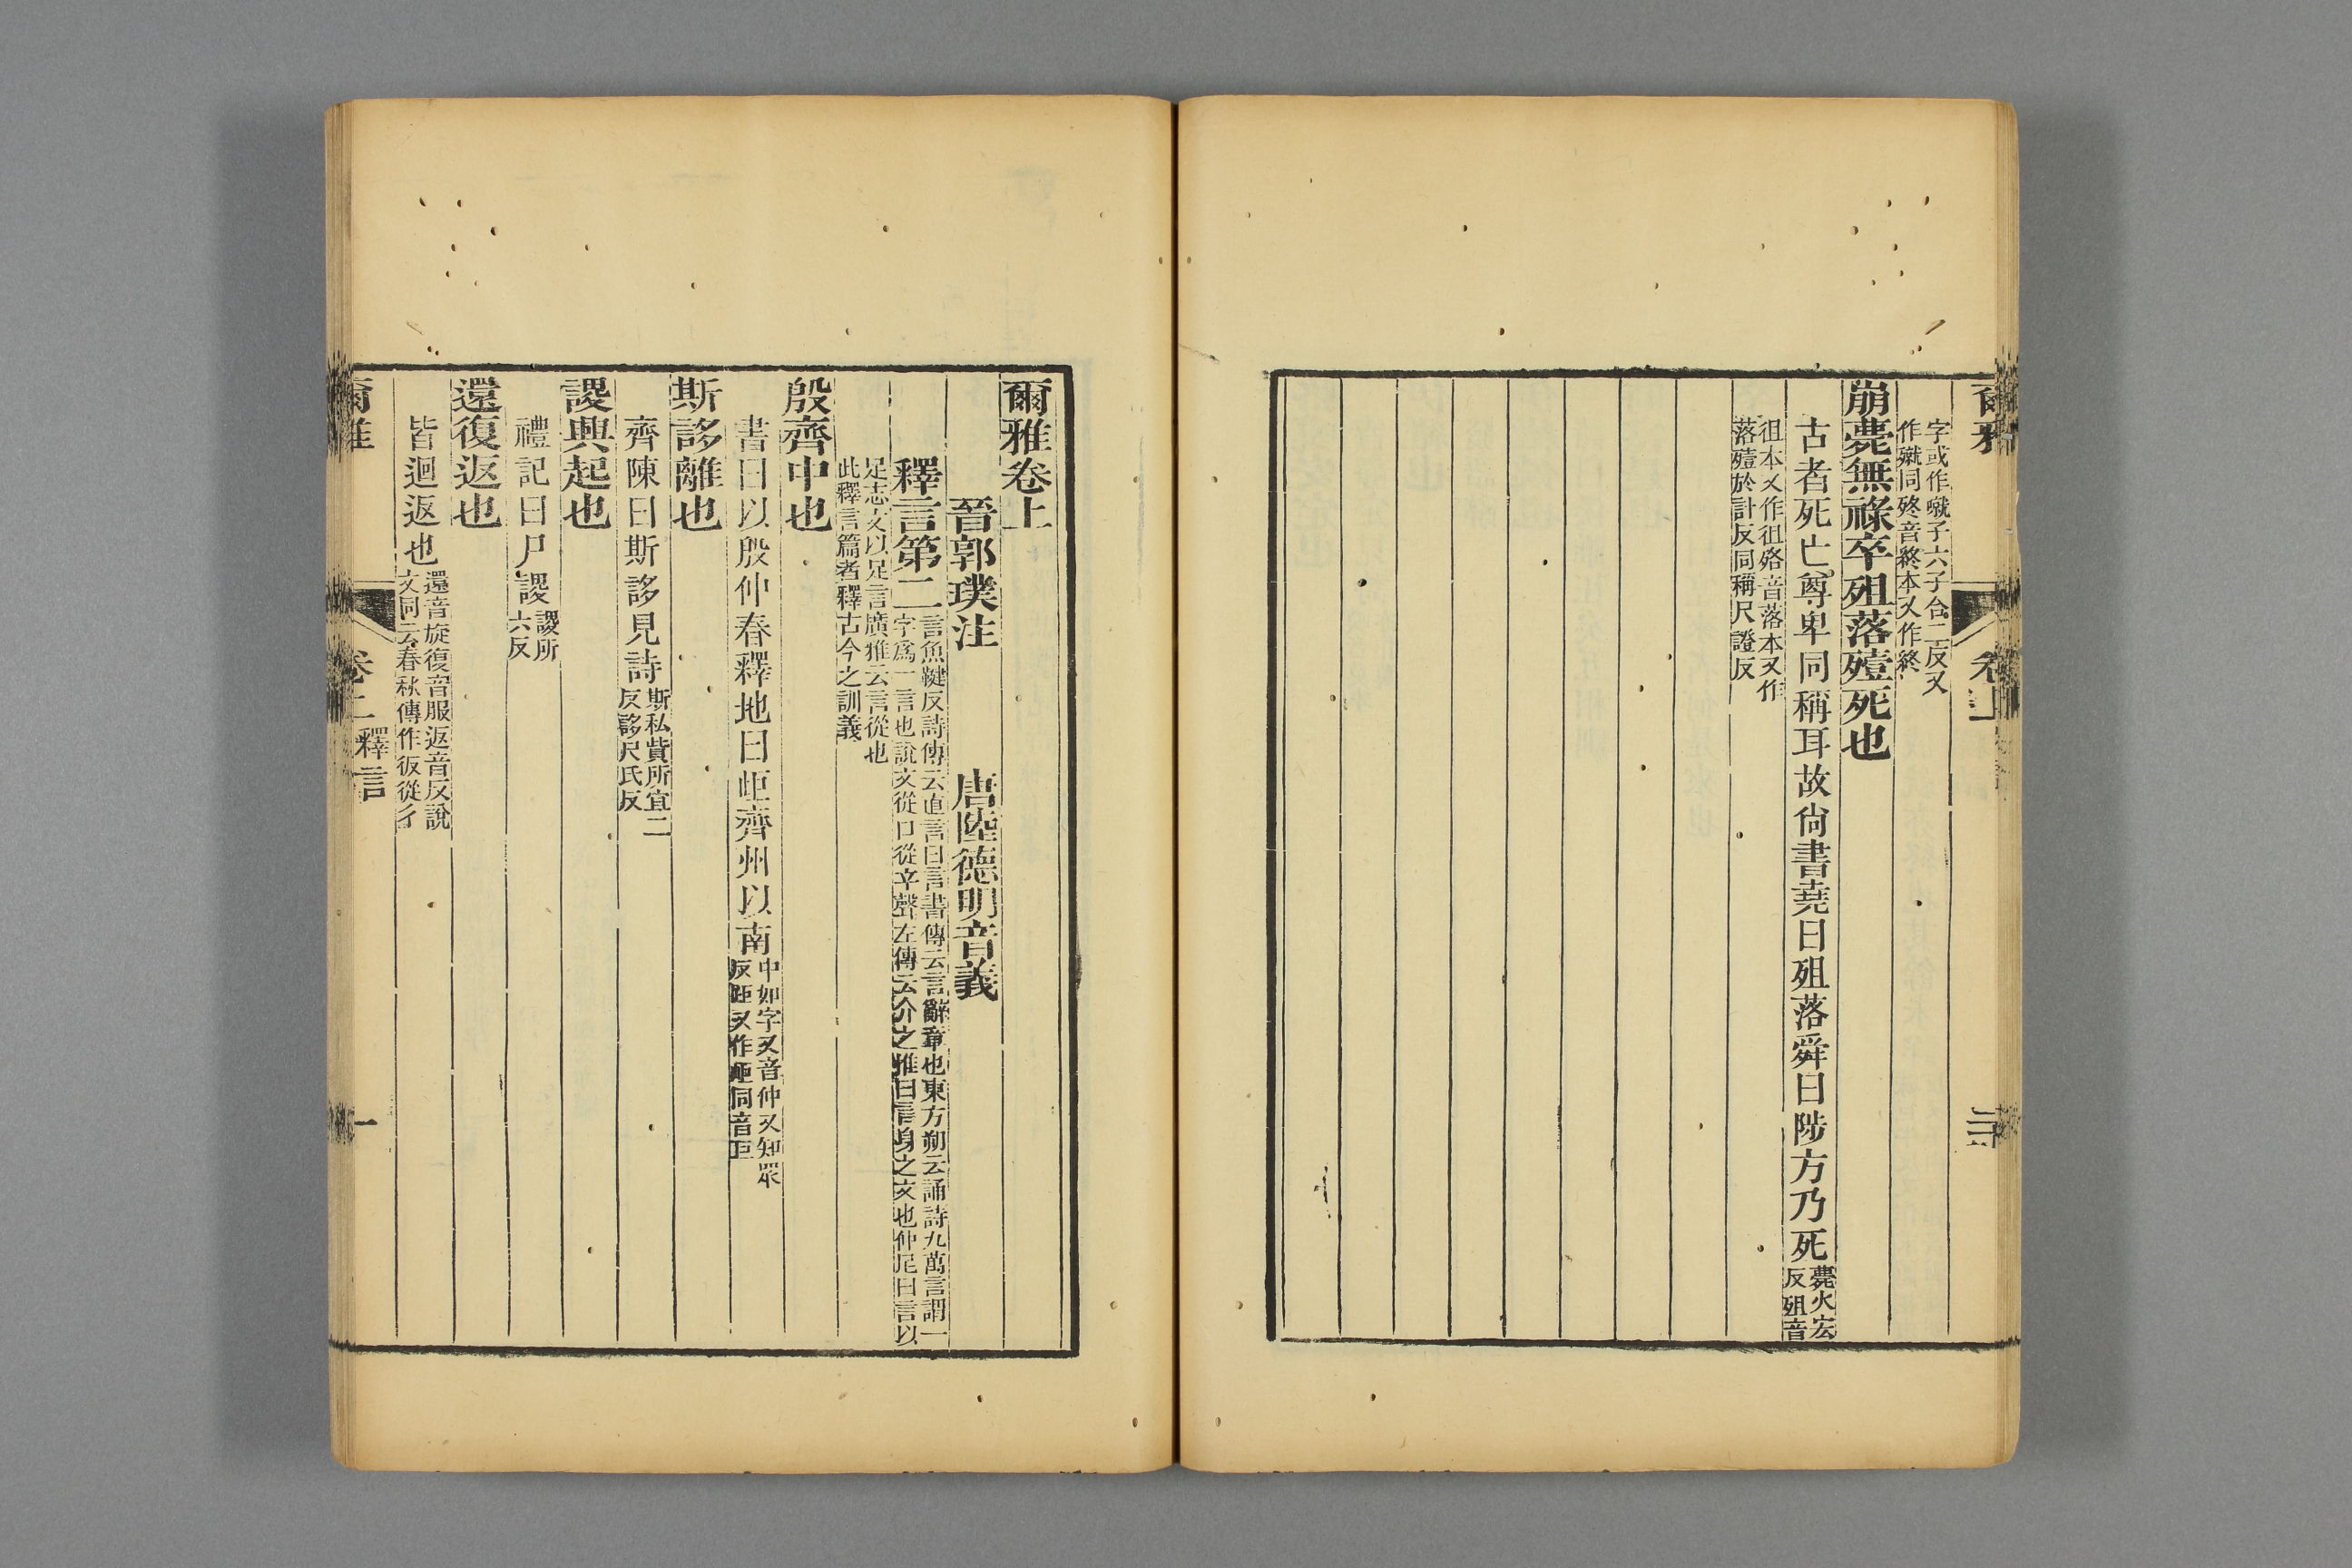 字或作噈子六子合二反又
作殧同終音終本又作終
崩薨無祿卒殂落殪死也
古者死亡尊卑同稱耳故尙書堯曰殂落舜曰陟方乃死
薨火宏
反殂音
徂本又作徂㱟音落本又作
落殪於計反同稱尺證反
爾雅卷上
晉郭璞注 唐陸德明音義
釋言第二
言魚鞬反詩傳云直言曰言書傳云言辭章也東方朔云誦詩九萬言謂一
字爲一言也說文從口從辛聲左傳云介之推曰言身之文也仲尼曰言以
足志文以足言廣雅云言從也
此釋言篇者釋古今之訓義
殷齊中也
書曰以殷仲春釋地曰岠齊州以南
中如字又音仲又知眾
反岠又作岠同音巨
斯誃離也
齊陳曰斯誃見詩
斯私貲所宜二
反誃尺氏反
謖興起也
禮記曰尸謖
謖所
六反
還復返也
皆迴返也
還音旋復音服返音反說
文同云春秋傳作彶從彳
爾雅 卷二 釋言 一